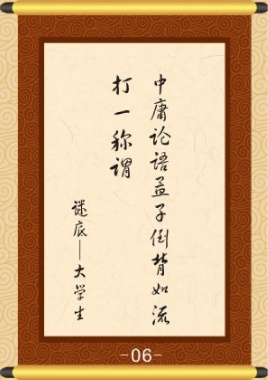 中庸论语孟子倒背如流
打一称谓
谜底——大学生
-06-